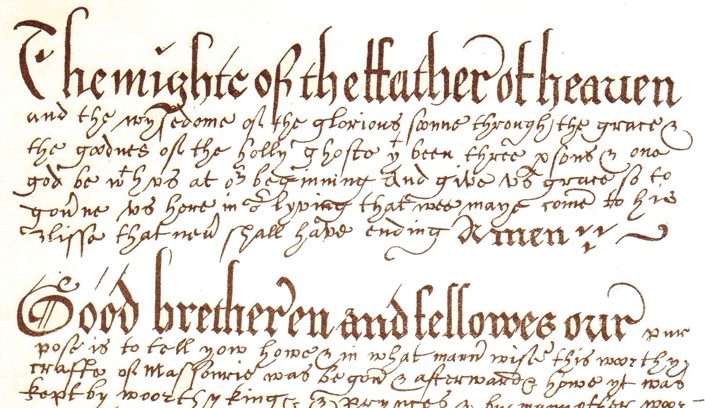 The mighte of the ffather of heauen
and the wysedome of the glorious sonne through the grace &
the goodnes of the holly ghoste yt been three psons & one
god be wth vs at or beginning and give vs grace so to
gou'ne vs here in or lyving that wee maye come to his
blisse that neu' shall have ending Amen
Good bretheren and fellowes our pur
pose is to tell yow howe & in what mann' wise this woorthy
craffte of Massonrie was begon & afterwards howe yt was
kept by woorthy kings & Prynces & by many other woor